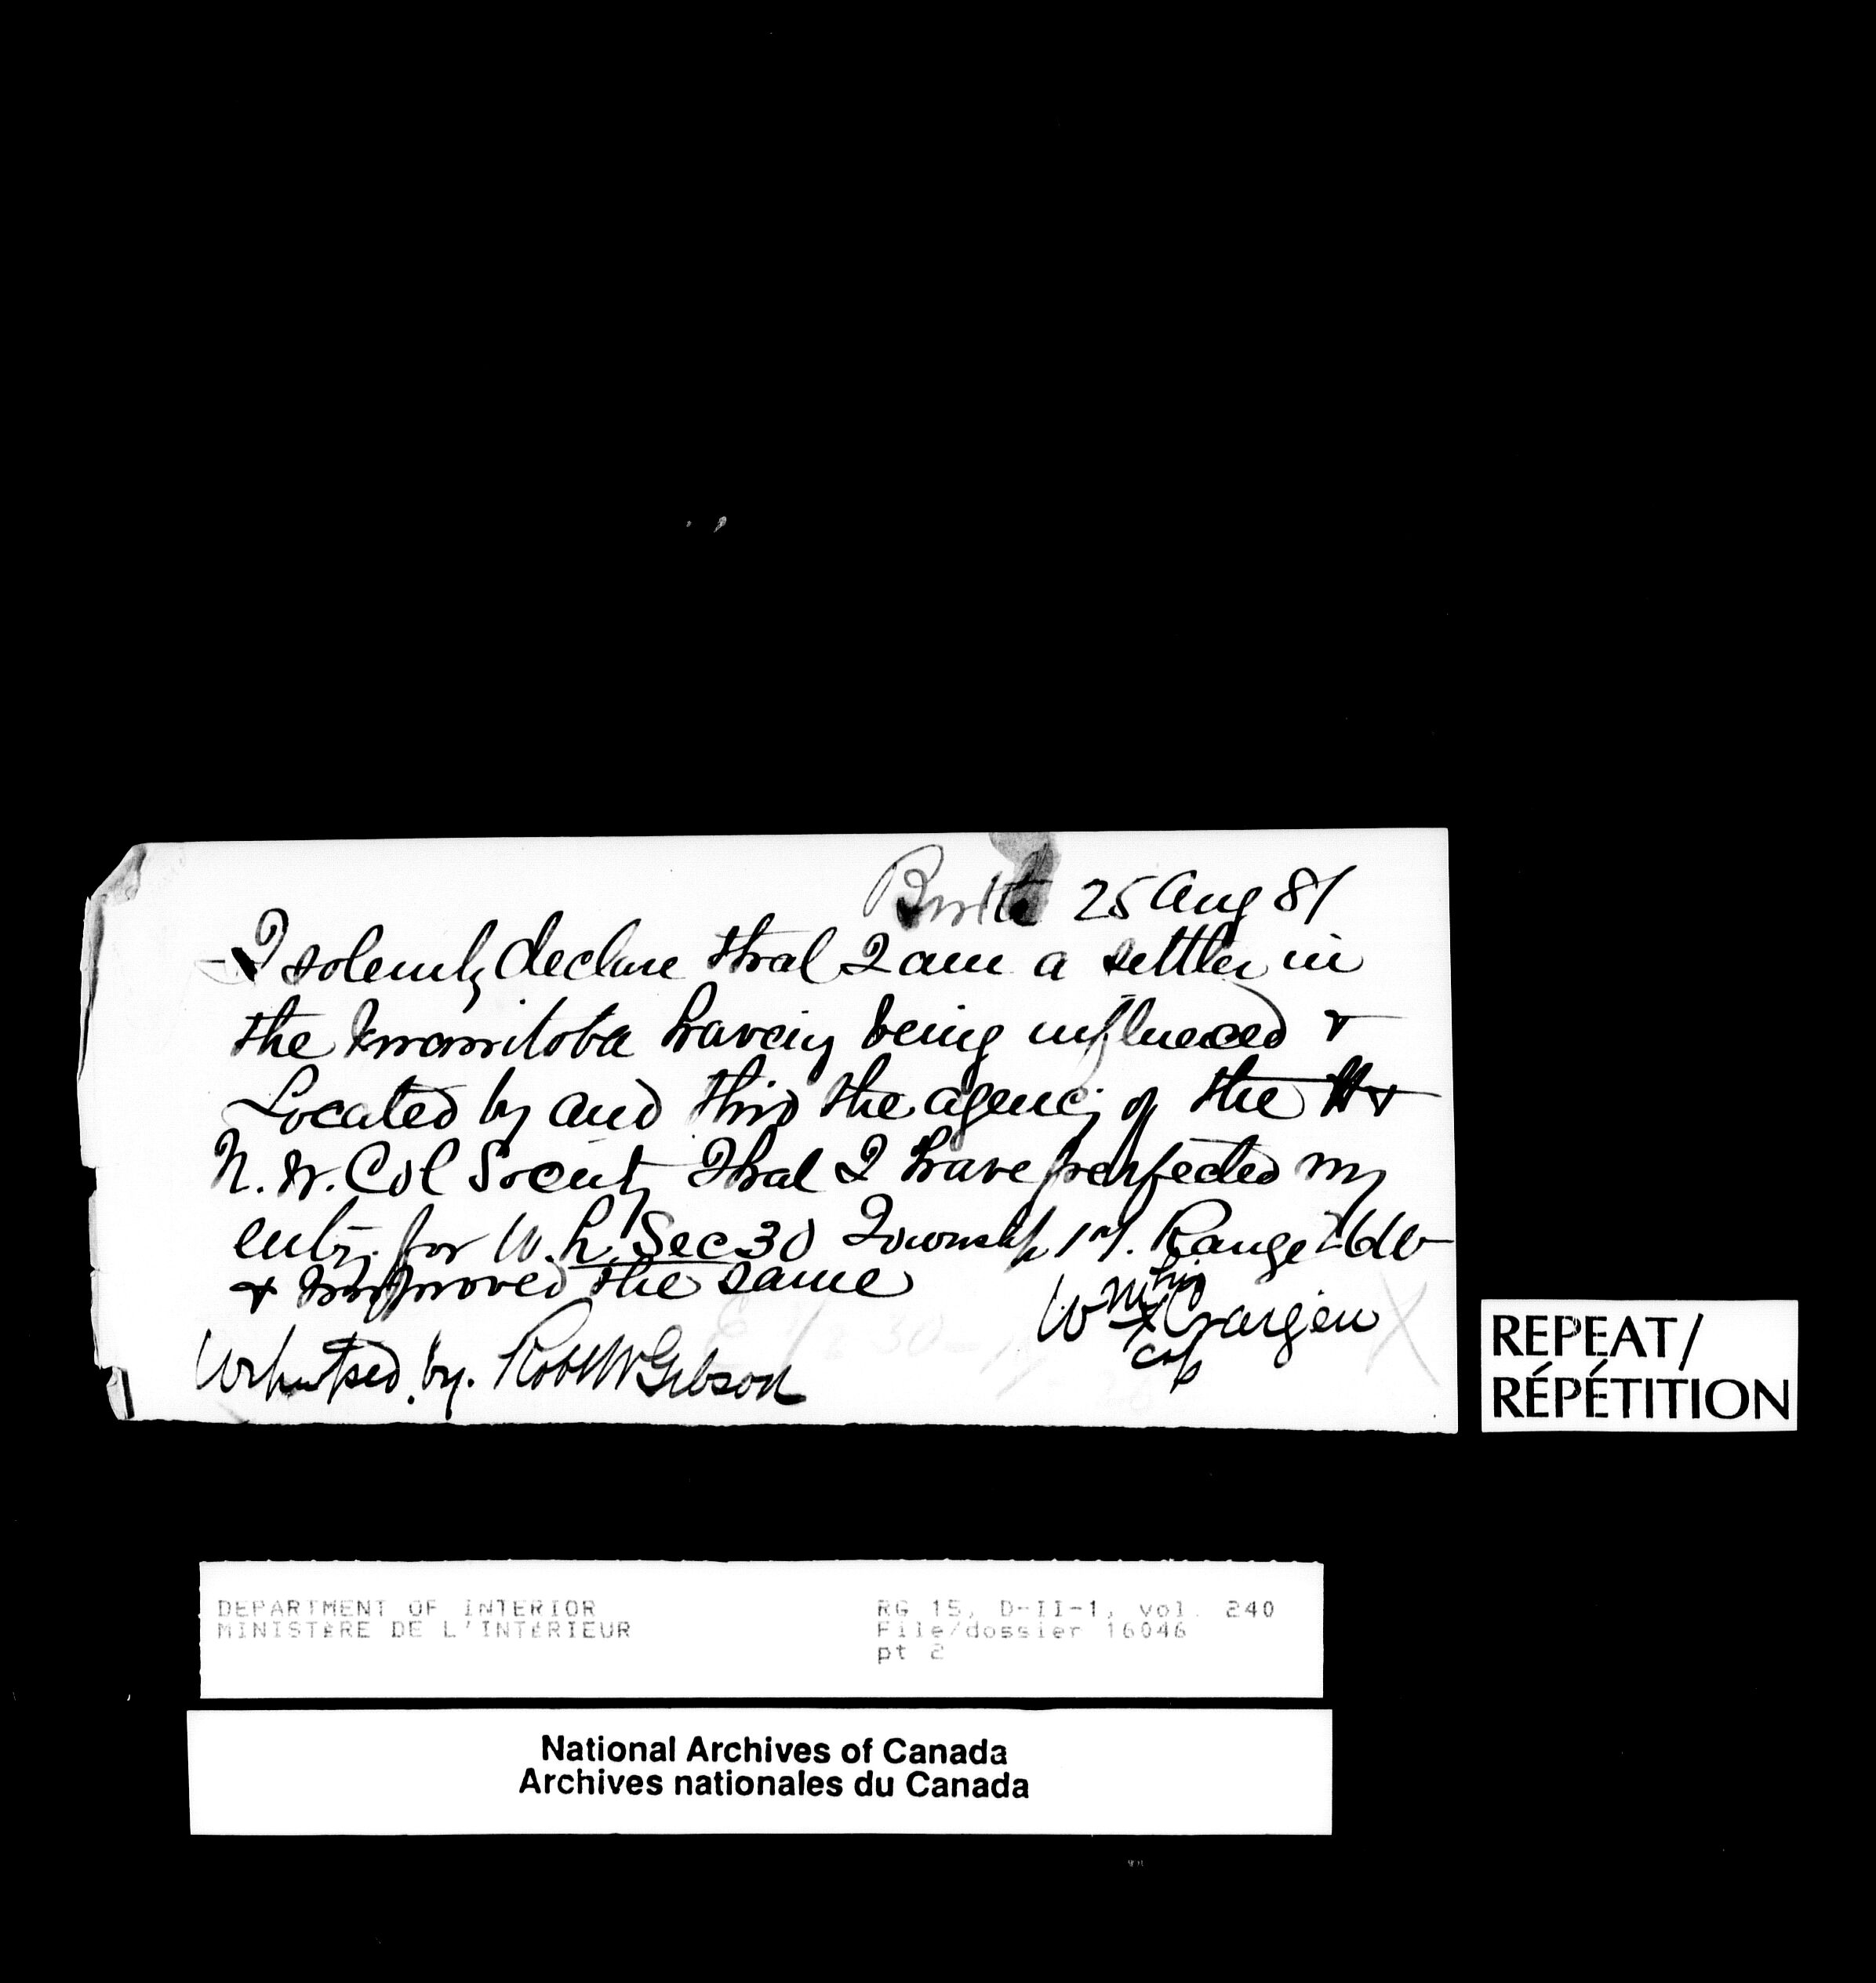 Birtle 25 Aug 81
I solemnly declare that I am a settler in
the Manitoba having being influenced &
Located by and thro the agency of the
N. W. Col Society That I have perfected my
entry for W. h. Sec 30 Township 17. Range 26W
& improved the same
his
Wm X Crargen
Witnessed by. Robt W Gibson
REPEAT/
RÉPÉTITION
DEPARTMENT OF INTERIOR
MINISTÈRE DE L'INTÉRIEUR
RG 15, D-II-1, vol. 240
File/dossier 16046
pt 2
National Archives of Canada
Archives nationales du Canada